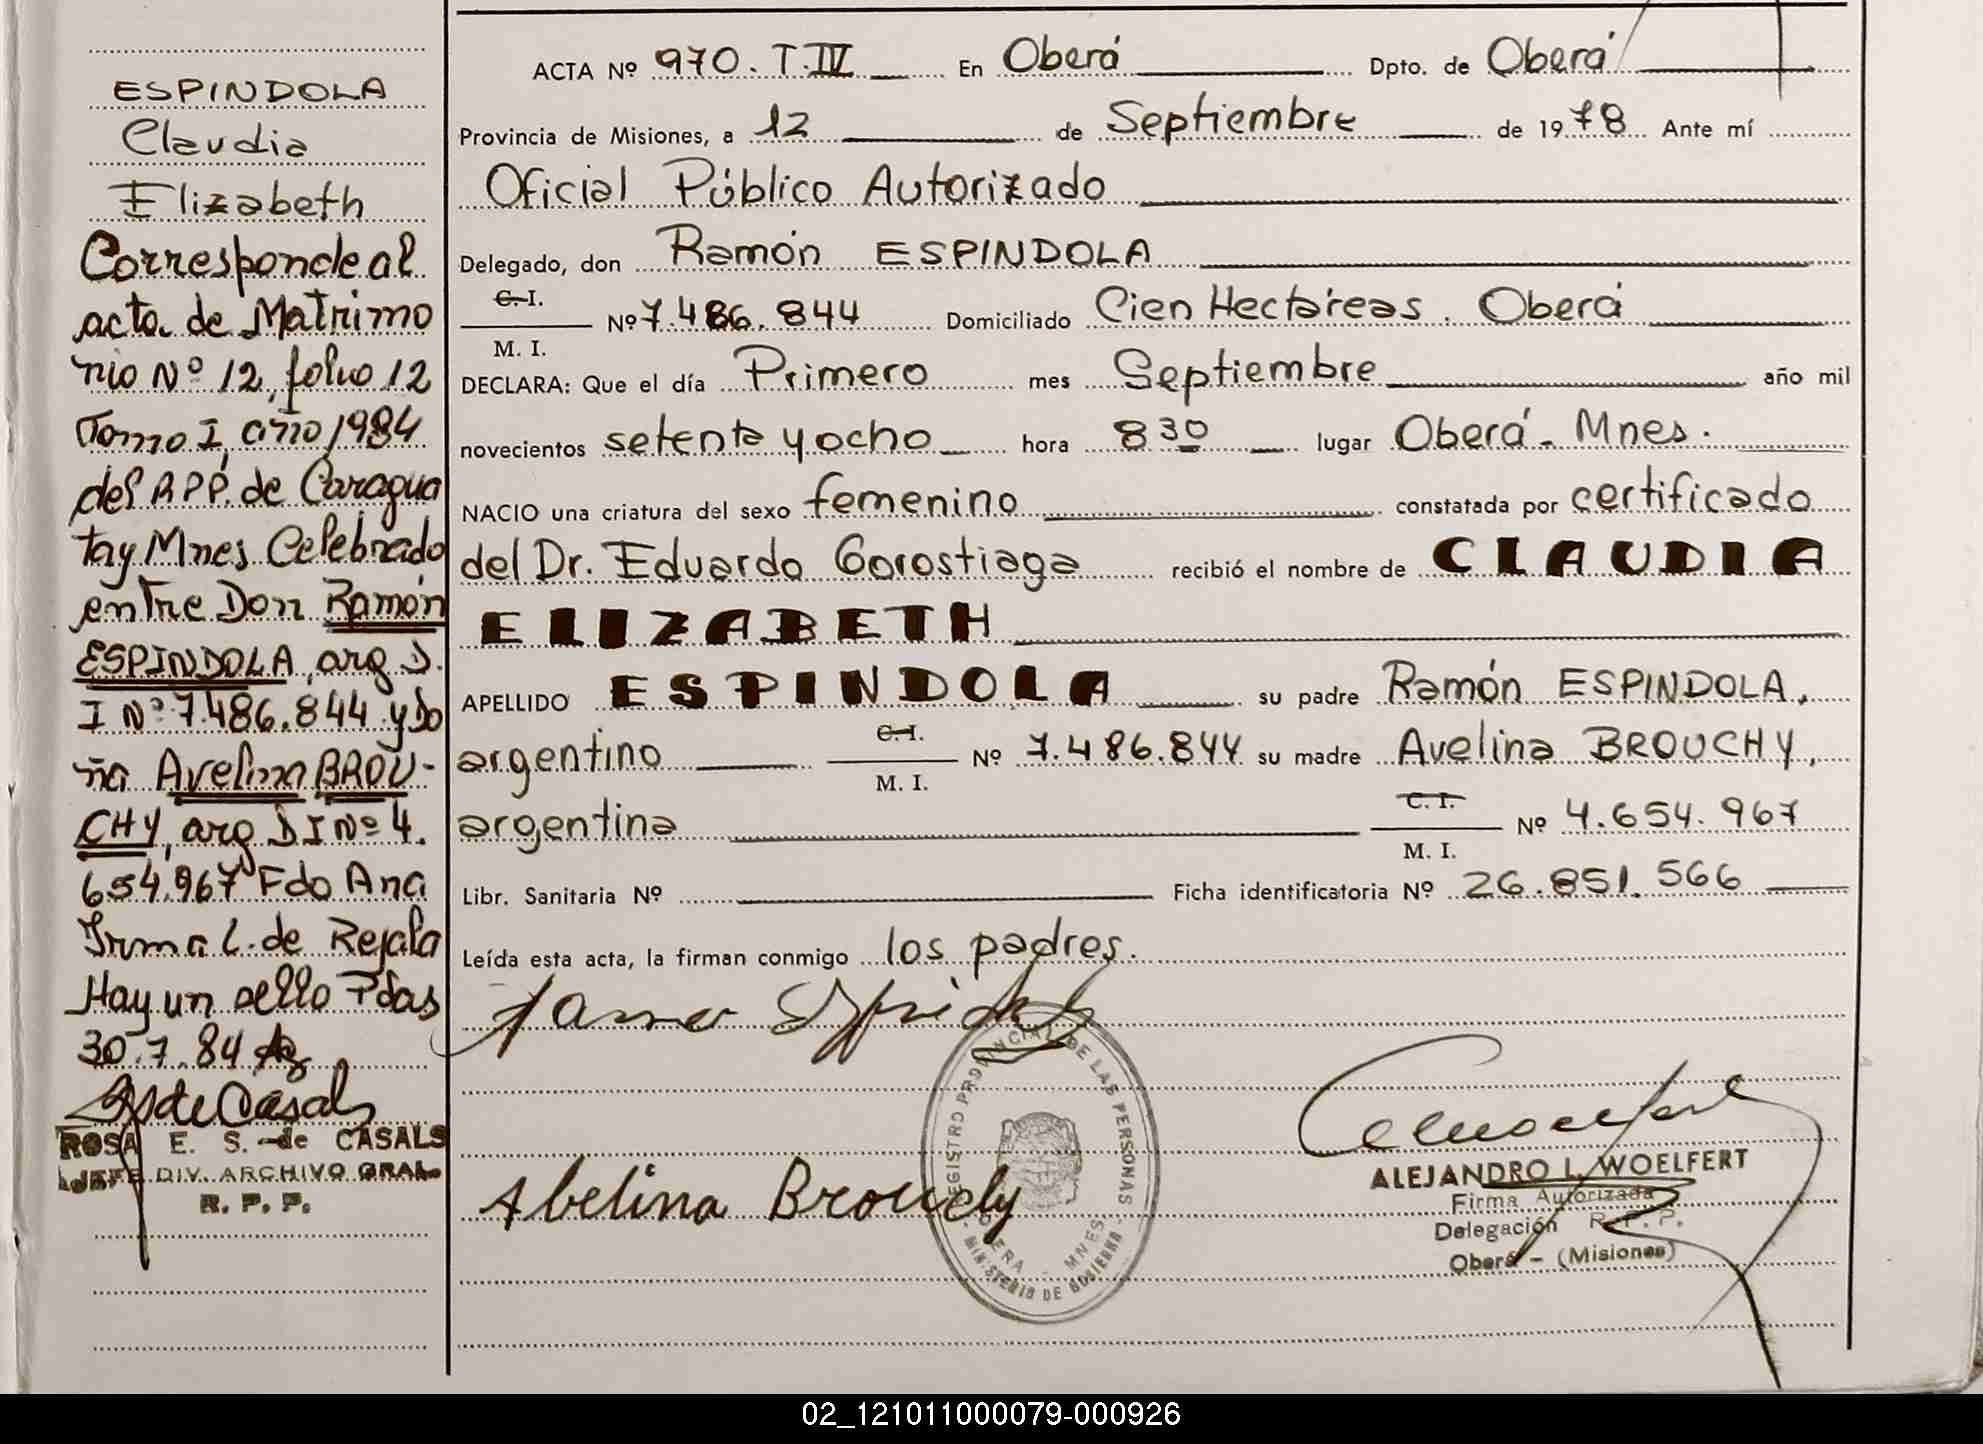 ESPINDOLA
Claudia
Elizabeth
Corresponde al
acta de Matrimo
nio Nº 12, folio 12
Tomo I, año 1984
del R P P. de Caragua
tay Mnes Celebrado
entre Don Ramón
ESPINDOLA, arg D.
I Nº 7.486.844 y Do
ña Avelina BROU-
CHY, arg D I Nº 4.
654.967 Fdo Ana
Irma L. de Rejala
Hay un sello Pdas
30.7.84
ROSA E. S. de CASALS
JEFE DIV. ARCHIVO GRAL.
R. P. P.
ACTA Nº 970. T. IV En Oberá Dpto. de Oberá
Provincia de Misiones, a 12 de Septiembre de 1978 Ante mí
Oficial Público Autorizado
Delegado, don Ramón ESPINDOLA
C. I.
M. I. Nº 7.486.844 Domiciliado Cien Hectáreas. Oberá
DECLARA: Que el día Primero mes Septiembre año mil
novecientos setenta y ocho hora 8 30 lugar Oberá - Mnes.
NACIO una criatura del sexo femenino constatada por certificado
del Dr. Eduardo Gorostiaga recibió el nombre de CLAUDIA
ELIZABETH
APELLIDO ESPINDOLA su padre Ramón ESPINDOLA,
argentino C. I. M. I. Nº 7.486.844 su madre Avelina BROUCHY,
argentina C. I. M. I. Nº 4.654.967
Libr. Sanitaria Nº Ficha identificatoria Nº 26.851.566
Leída esta acta, la firman conmigo los padres.
Abelina Brouchy
REGISTRO PROVINCIAL DE LAS PERSONAS
OBERA - MNES
MINISTERIO DE GOBIERNO
ALEJANDRO L. WOELFERT
Firma Autorizada
Delegación R. P. P.
Oberá - (Misiones)
02_121011000079-000926